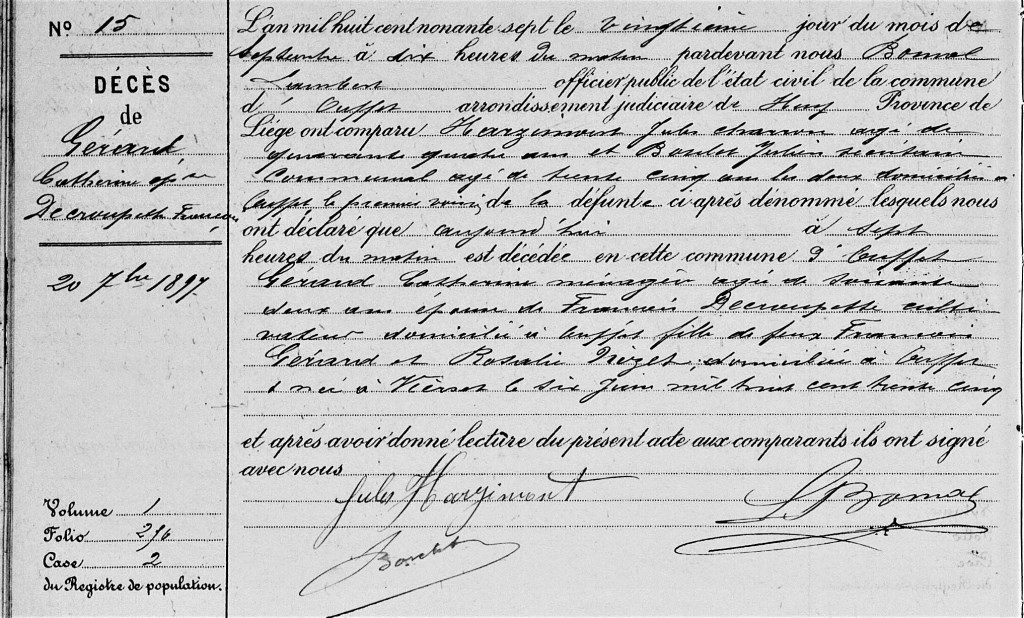 Nº 15
DÉCÈS
de
Gérard
Catherine épse
Decroupette François
20 7bre 1897
Volume 1
Folio 216
Case 2
du Registre de population.
L'an mil huit cent nonante sept le vingtième jour du mois de
Septembre à dix heures du matin pardevant nous Bomal
Lambert officier public de l'état civil de la commune
d' Ouffet arrondissement judiciaire de Huy Province de
Liége ont comparu Hargimont Jules charron agé de
quarante quatre ans et Bouelet secrétaire
communal agé de trente cinq ans les deux domiciliés à
Ouffet le premier voisin de la défunte ci après dénommé lesquels nous
ont déclaré que aujourd'hui à sept
heures du matin est décédée en cette commune d' Ouffet
Gérard Catherine ménagère agée de soixante
deux ans épouse de François Decroupette culti
vateur domicilié à Ouffet fille de feux François
Gérard et Rosalie domiciliée à Ouffet
née à Vierset le six Juin mil huit cent trente cinq
et après avoir donné lecture du présent acte aux comparants ils ont signé
avec nous
Jules Hargimont
L. Bomal